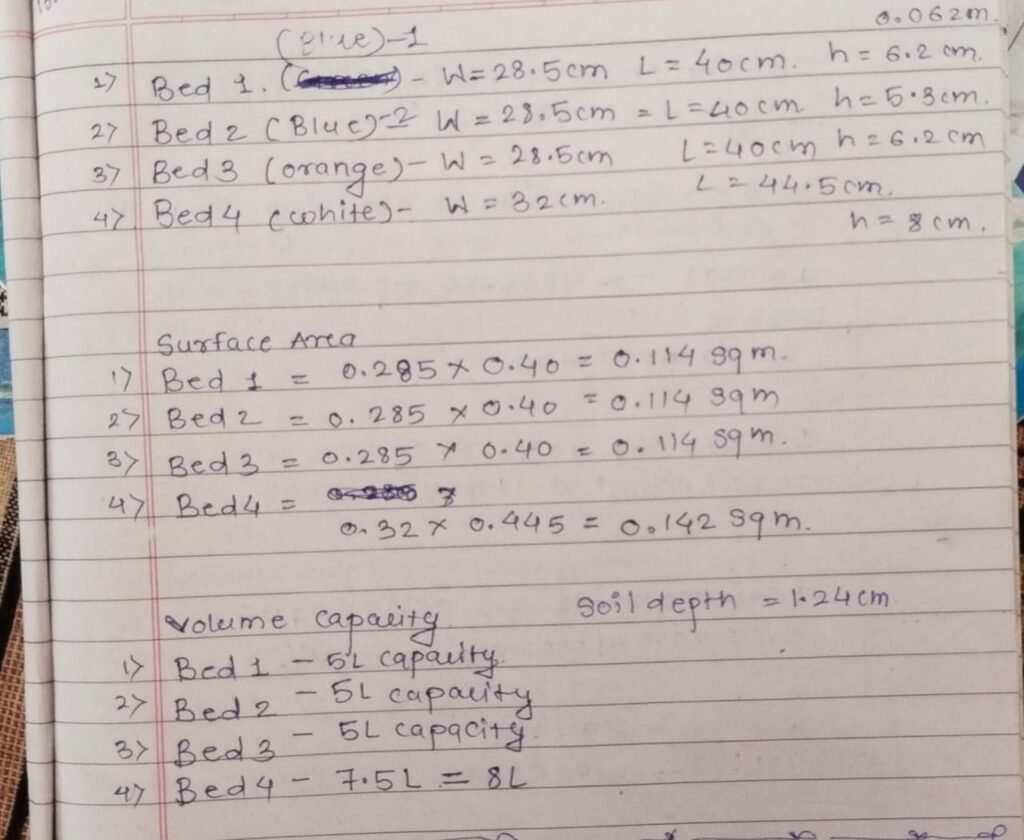 0.062m.
(Blue)-1
1) Bed 1. - W= 28.5cm L = 40cm. h = 6.2 cm.
2) Bed 2 (Blue)-2 W = 28.5cm = L=40cm h=5.3cm.
3) Bed 3 (orange)- W = 28.5cm L=40cm h=6.2cm
4) Bed 4 (white)- W = 32cm. L = 44.5cm.
h = 8cm.
Surface Area
1) Bed 1 = 0.285 x 0.40 = 0.114 sqm.
2) Bed 2 = 0.285 x 0.40 = 0.114 sqm
3) Bed 3 = 0.285 x 0.40 = 0.114 sqm.
4) Bed 4 =
0.32 x 0.445 = 0.142 sqm.
Volume capacity Soil depth = 1.24cm
1) Bed 1 - 5L capacity.
2) Bed 2 - 5L capacity
3) Bed 3 - 5L capacity.
4) Bed 4 - 7.5L = 8L